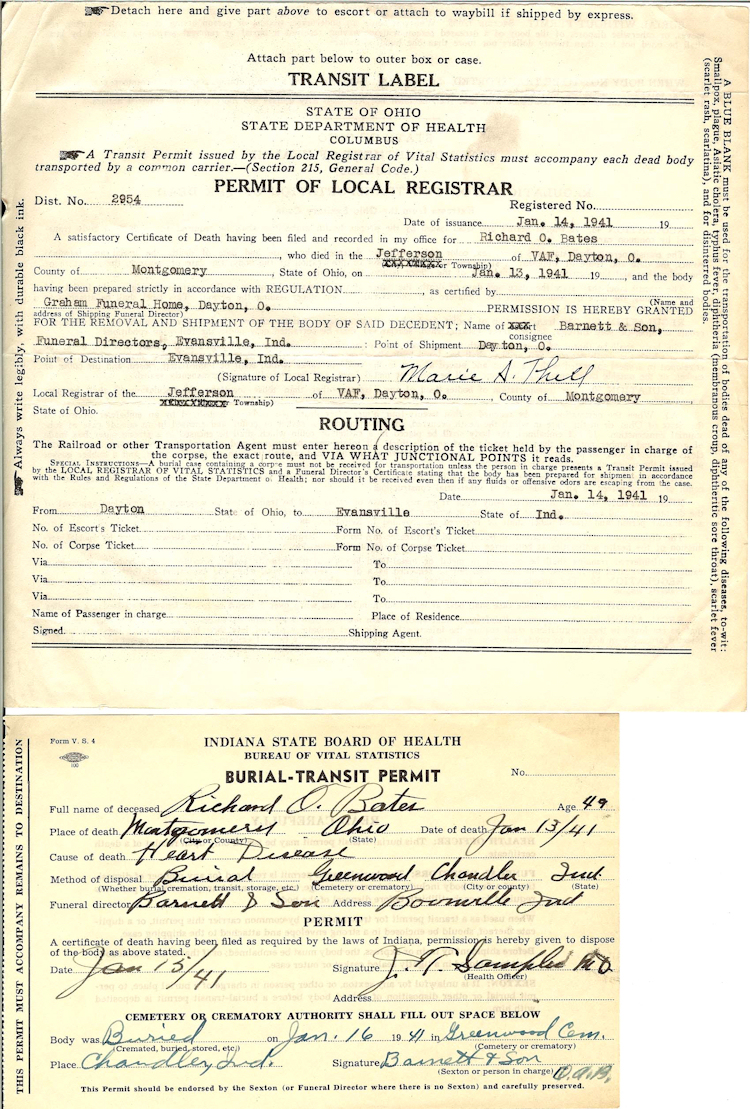 Detach here and give part above to escort or attach to waybill if shipped by express.
Attach part below to outer box or case.
TRANSIT LABEL
STATE OF OHIO
STATE DEPARTMENT OF HEALTH
COLUMBUS
A Transit Permit issued by the Local Registrar of Vital Statistics must accompany each dead body
transported by a common carrier.—(Section 215, General Code.)
PERMIT OF LOCAL REGISTRAR
Dist. No. 2954 Registered No.
Date of issuance Jan. 14, 1941 19
A satisfactory Certificate of Death having been filed and recorded in my office for Richard O. Bates
, who died in the Jefferson of VAF, Dayton, O.
or Township)
County of Montgomery, State of Ohio, on Jan. 13, 1941 19, and the body
having been prepared strictly in accordance with REGULATION, as certified by
(Name and
Graham Funeral Home, Dayton, O. PERMISSION IS HEREBY GRANTED
address of Shipping Funeral Director)
FOR THE REMOVAL AND SHIPMENT OF THE BODY OF SAID DECEDENT; Name of Barnett & Son,
consignee
Funeral Directors, Evansville, Ind. : Point of Shipment Dayton, O.
Point of Destination Evansville, Ind.
(Signature of Local Registrar) Marie A. Thell
Local Registrar of the Jefferson of VAF, Dayton, O., County of Montgomery
or Township)
State of Ohio.
ROUTING
The Railroad or other Transportation Agent must enter hereon a description of the ticket held by the passenger in charge of
the corpse, the exact route, and VIA WHAT JUNCTIONAL POINTS it reads.
SPECIAL INSTRUCTIONS—A burial case containing a corpse must not be received for transportation unless the person in charge presents a Transit Permit issued
by the LOCAL REGISTRAR OF VITAL STATISTICS and a Funeral Director's Certificate stating that the body has been prepared for shipment in accordance
with the Rules and Regulations of the State Department of Health; nor should it be received even then if any fluids or offensive odors are escaping from the case.
Date Jan. 14, 1941 19
From Dayton State of Ohio, to Evansville State of Ind.
No. of Escort's Ticket Form No. of Escort's Ticket
No. of Corpse Ticket Form No. of Corpse Ticket
Via To
Via To
Via To
Name of Passenger in charge Place of Residence
Signed Shipping Agent.
Always write legibly, with durable black ink.
A BLUE BLANK must be used for the transportation of bodies dead of any of the following diseases, to-wit:
Smallpox, plague, Asiatic cholera, typhus fever, diphtheria (membranous croup, diphtheritic sore throat), scarlet fever
(scarlet rash, scarlatina), and for disinterred bodies.
THIS PERMIT MUST ACCOMPANY REMAINS TO DESTINATION
Form V. S. 4
100
INDIANA STATE BOARD OF HEALTH
BUREAU OF VITAL STATISTICS
BURIAL-TRANSIT PERMIT No.
Full name of deceased Richard O. Bates Age 49
Place of death Montgomery Ohio Date of death Jan 13/41
(City or County) (State)
Cause of death Heart Disease
Method of disposal Burial Greenwood Chandler Ind
(Whether burial, cremation, transit, storage, etc.) (Cemetery or crematory) (City or county) (State)
Funeral director Barnett & Son Address Boonville Ind
PERMIT
A certificate of death having been filed as required by the laws of Indiana, permission is hereby given to dispose
of the body as above stated.
Date Jan 15/41 Signature J. T. Samples MD
(Health Officer)
Address
CEMETERY OR CREMATORY AUTHORITY SHALL FILL OUT SPACE BELOW
Body was Buried on Jan. 16 1941 in Greenwood Cem.
(Cremated, buried, stored, etc.) (Cemetery or crematory)
Place Chandler, Ind. Signature Barnett & Son
(Sexton or person in charge) O.A.B.
This Permit should be endorsed by the Sexton (or Funeral Director where there is no Sexton) and carefully preserved.